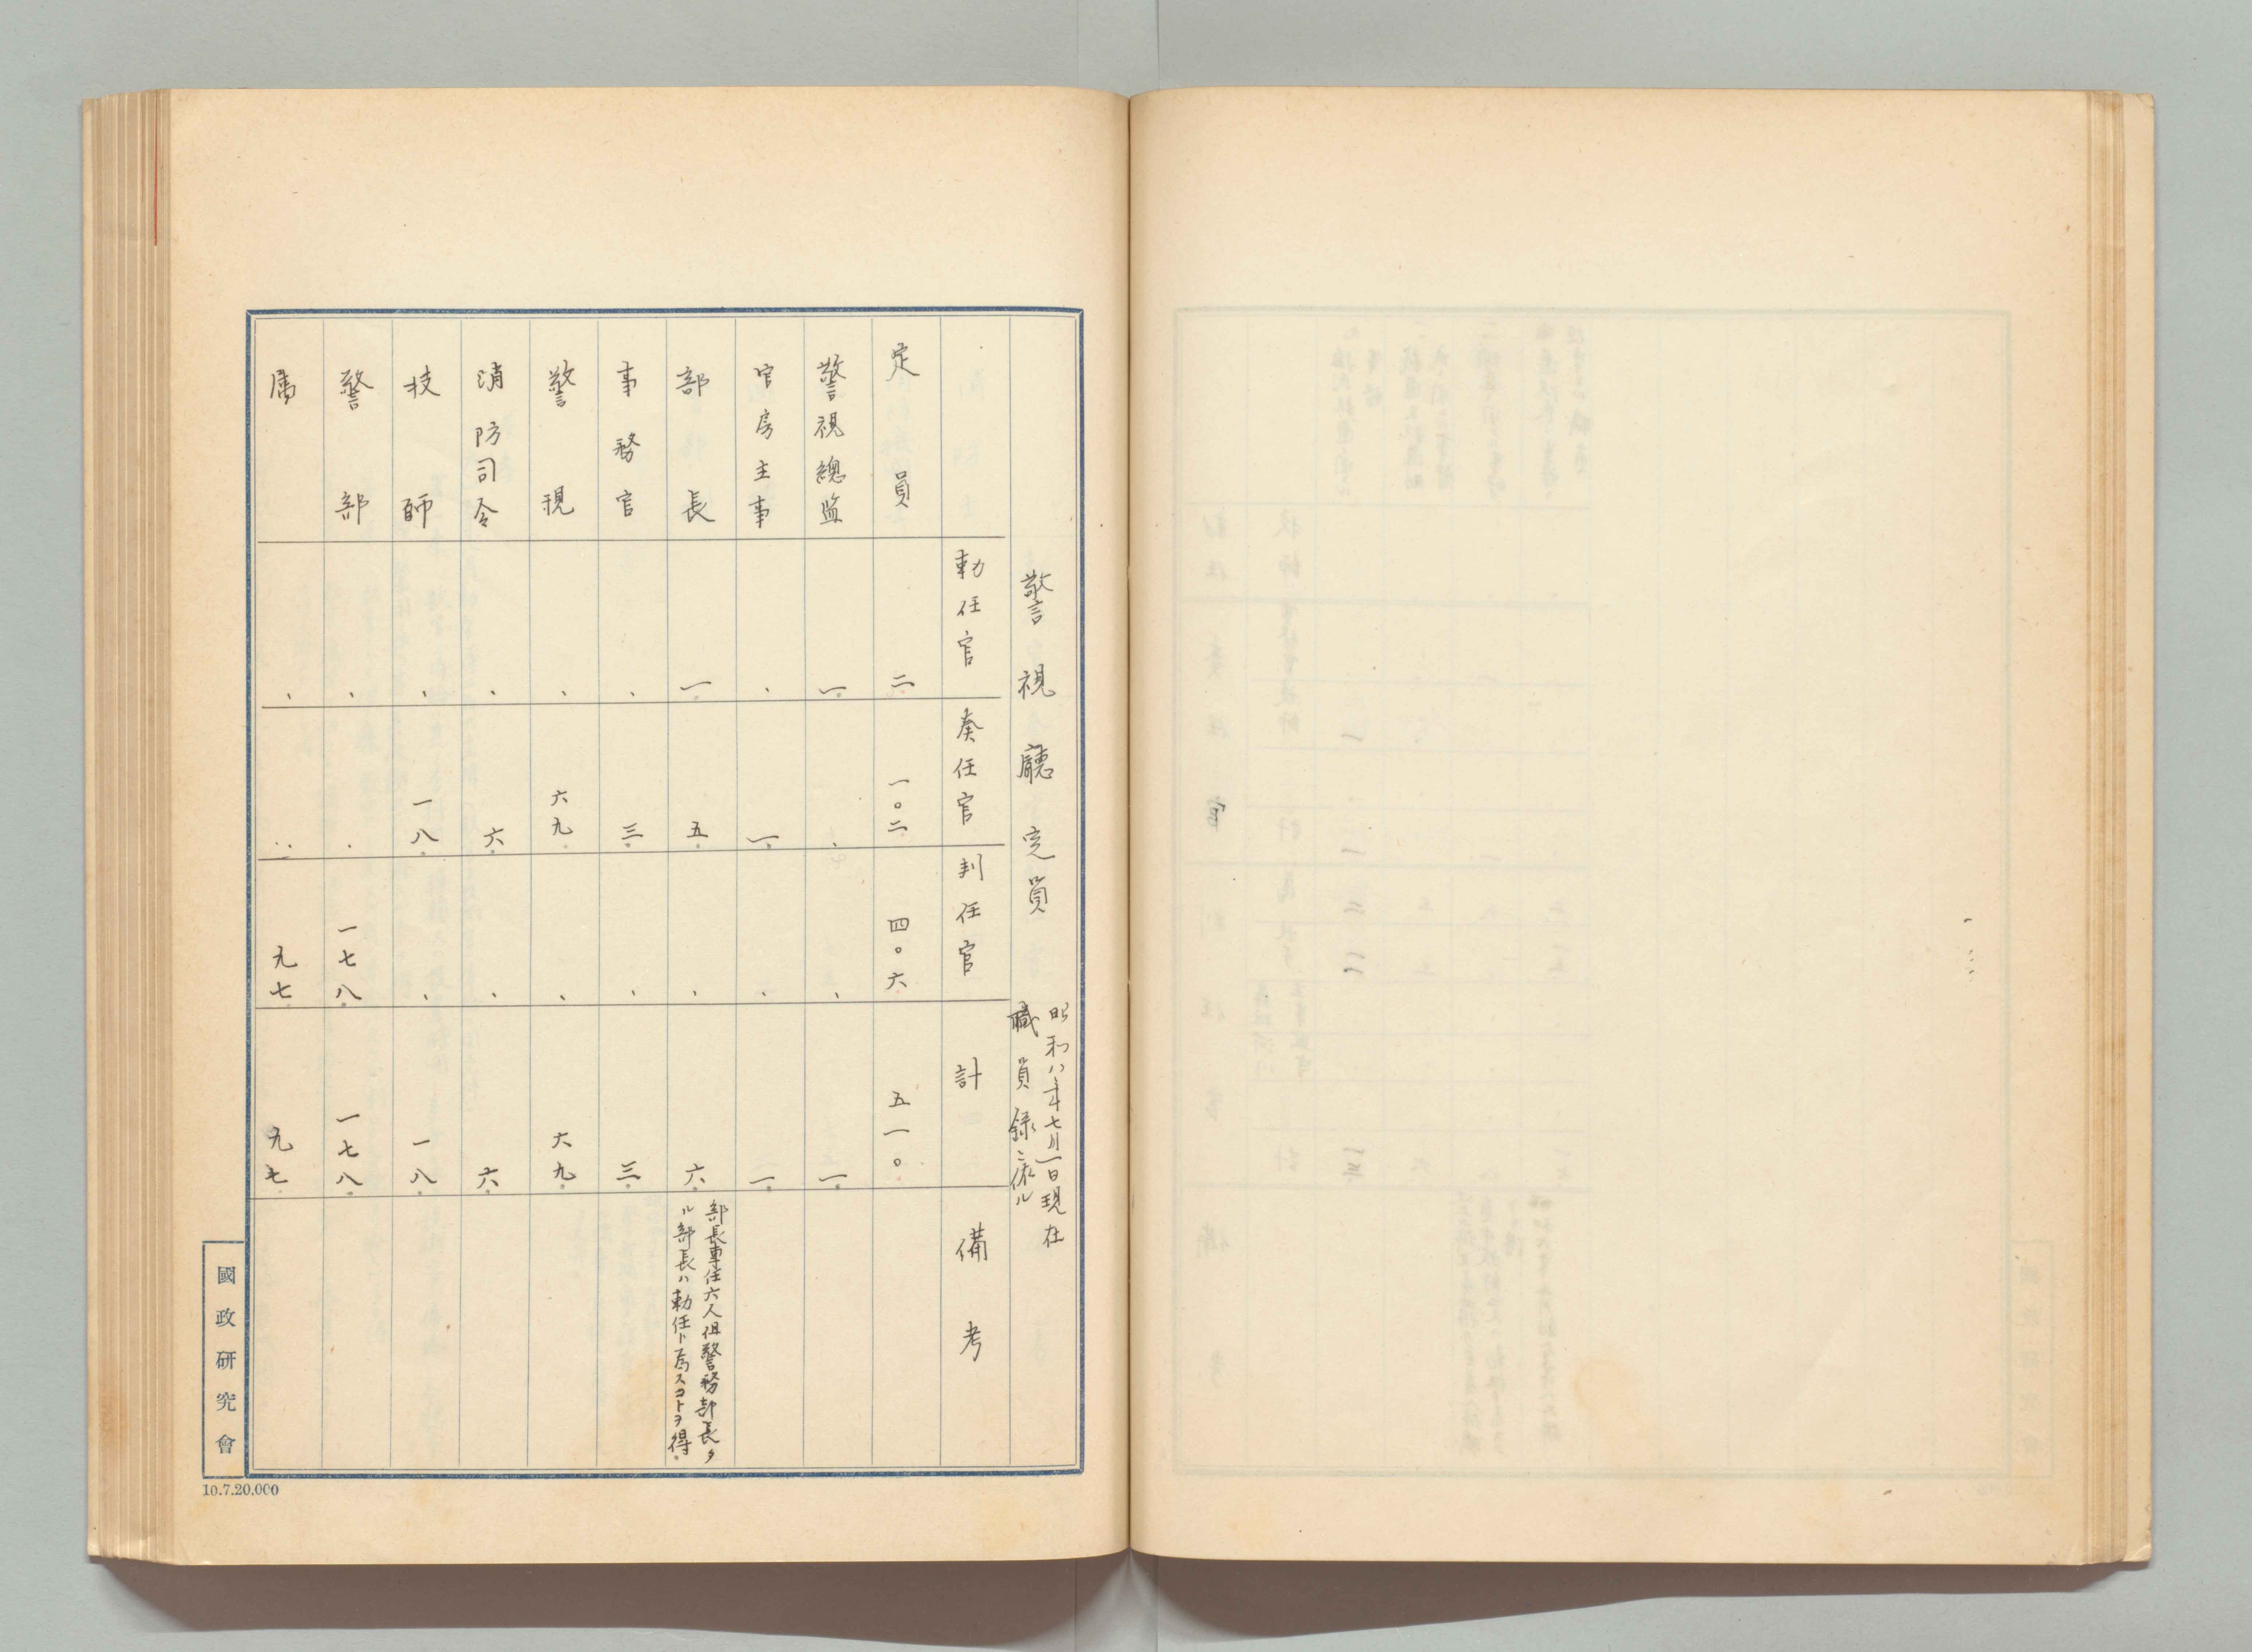 警視廳定員
昭和八年七月一日現在
職員録ニ依ル
勅任官 奏任官 判任官 計 備考
定員 二 一〇二 四〇六 五一〇
警視總監 一 、 、 一
官房主事 、 一 、 一
部長 一 五 、 六
部長專任六人但警務部長タ
ル部長ハ勅任ト爲スコトヲ得
事務官 、 三 、 三
警視 、 六九 、 六九
消防司令 、 六 、 六
技師 、 一八 、 一八
警部 、 、 一七八 一七八
属 、 、 九七 九七
國政研究會
10.7.20,000